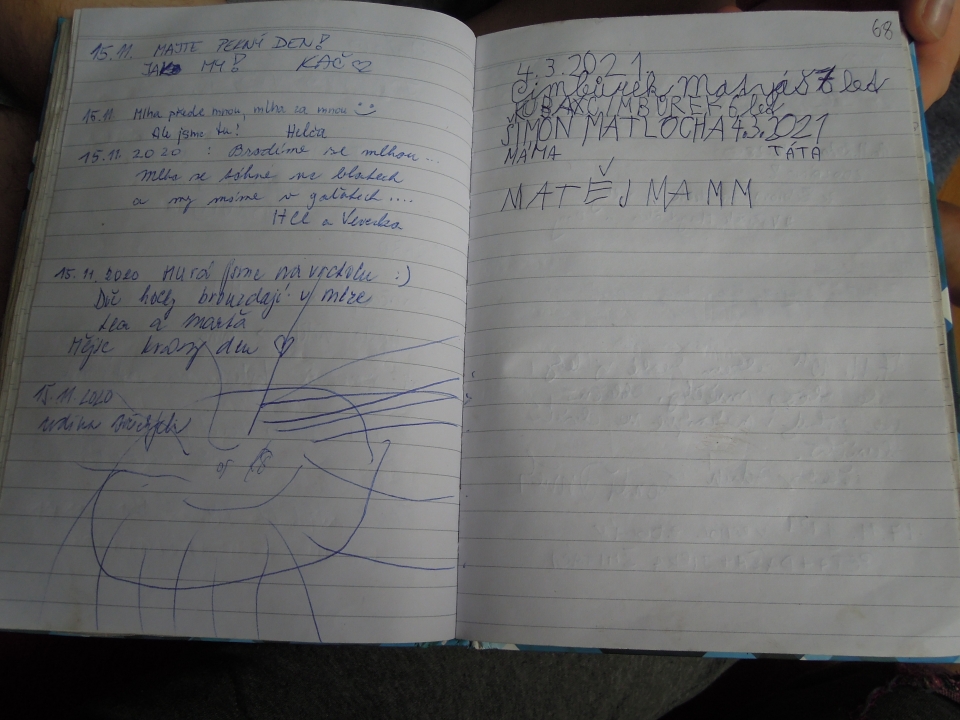 15.11. MAJTE PĚKNÝ DEN!
JAKO MY! KAČ ♡
15.11. Mlha přede mnou, mlha za mnou
Ale jsme tu! Helča
15.11.2020 : Brodíme se mlhou...
mlha se táhne na blatech
a my máme v gatích....
HCC a Veverka
15.11.2020 Hurá jsme na vrcholu :)
brouzdají v mlze
Lea a
Mějte krásný den ♡
15.11.2020
rodina
68
4.3.2021
Cimbůrek Matyáš 7 let
KUBA X CIMBŮREK 6 let
ŠIMON MATLOCHA 4.3.2021
MÁMA TÁTA
MATĚJ MAMM